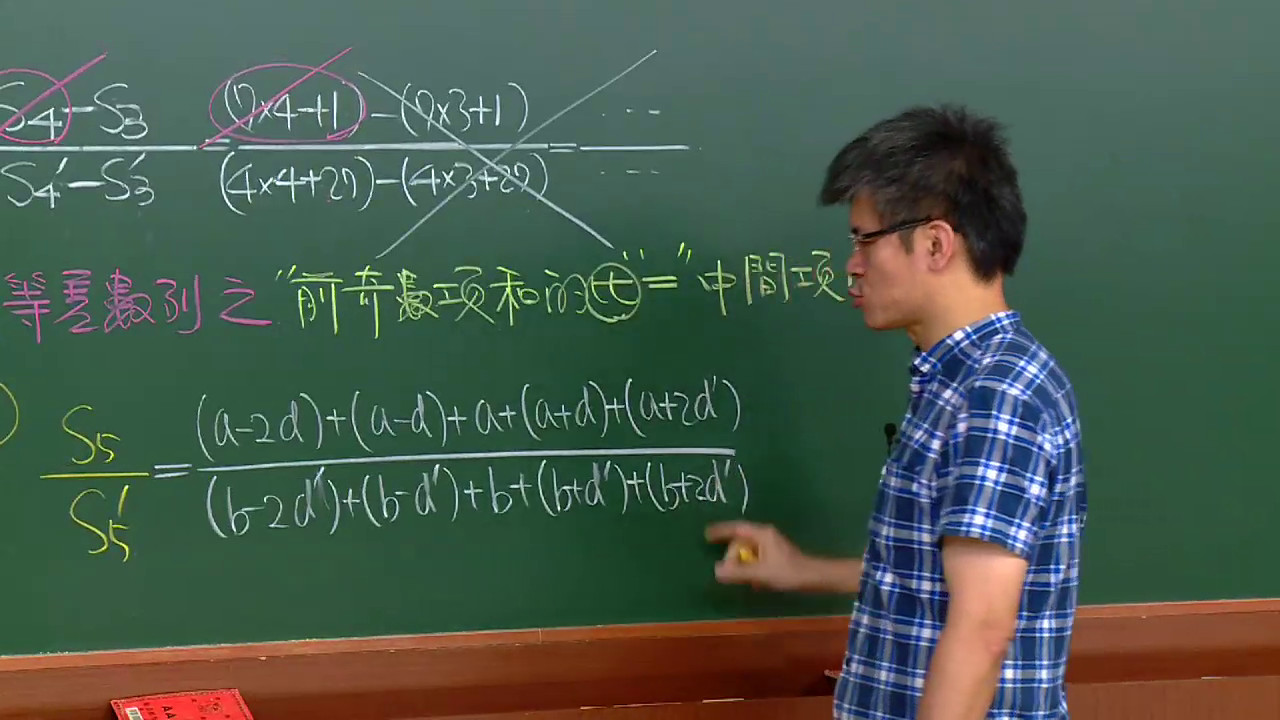 S₄-S₃ / S₄'-S₃' = (7×4+1)-(7×3+1) / (4×4+27)-(4×3+27) = ... / ...
等差數列之"前奇數項和的比"="中間項
S₅ / S₅' = (a-2d)+(a-d)+a+(a+d)+(a+2d') / (b-2d')+(b-d')+b+(b+d')+(b+2d')